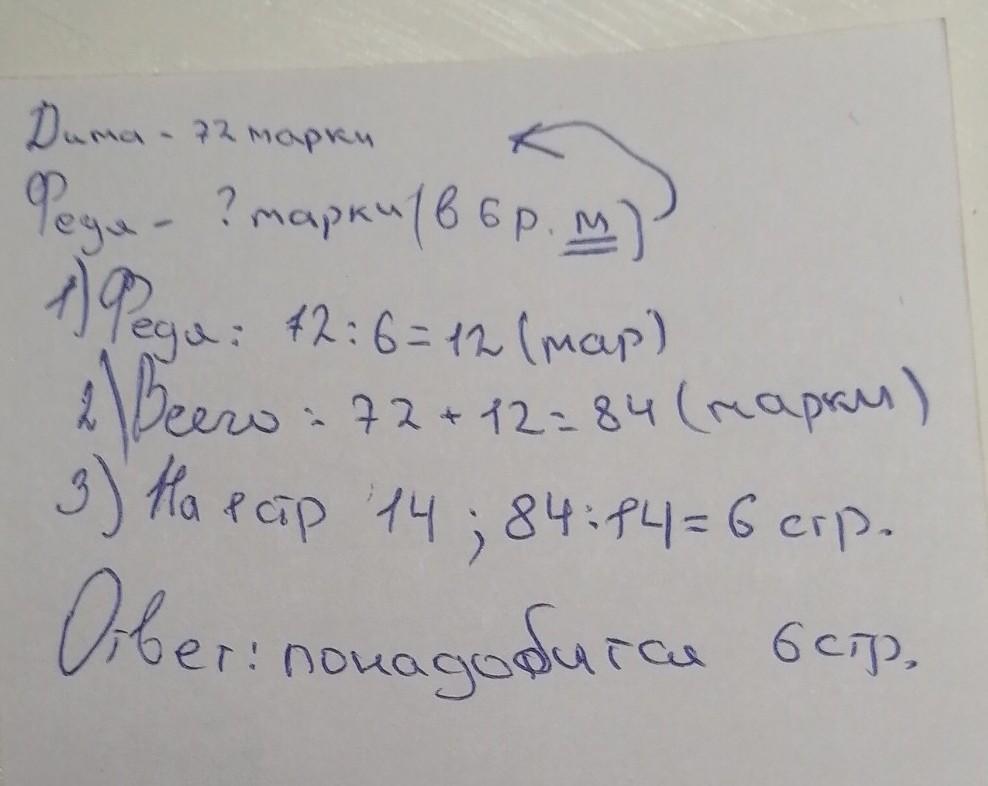 Дима - 72 марки
Федя - ? марки (в 6 р. м)
1) Федя: 72:6=12 (мар)
2) Всего: 72 + 12 = 84 (марки)
3) На 1 стр 14 ; 84:14= 6 стр.
Ответ: понадобится 6 стр.